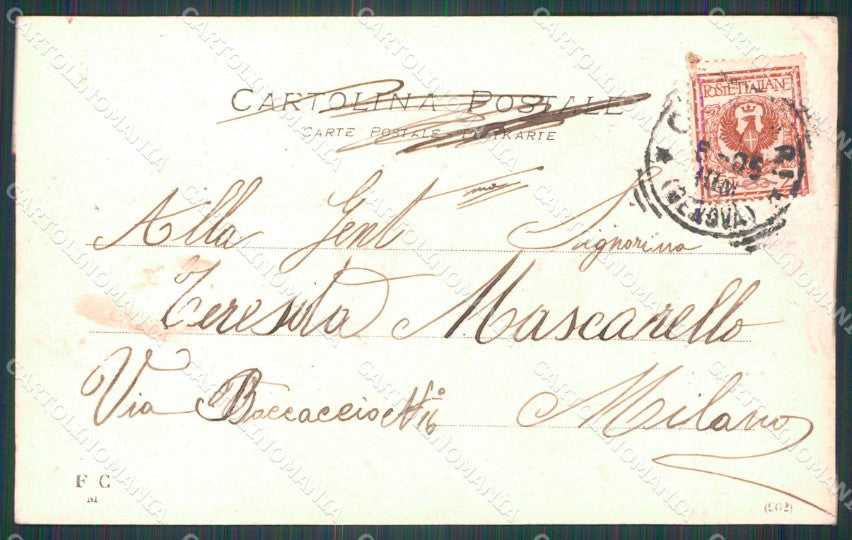 CARTOLINA POSTALE
CARTE POSTALE - POSTKARTE
POSTE ITALIANE
5-05
10M
(GENOVA)
Alla Gent.ma Signorina
Teresita Mascarello
Via Boccaccio No 16 Milano
F C
M
(902)
CARTOLINOMANIA